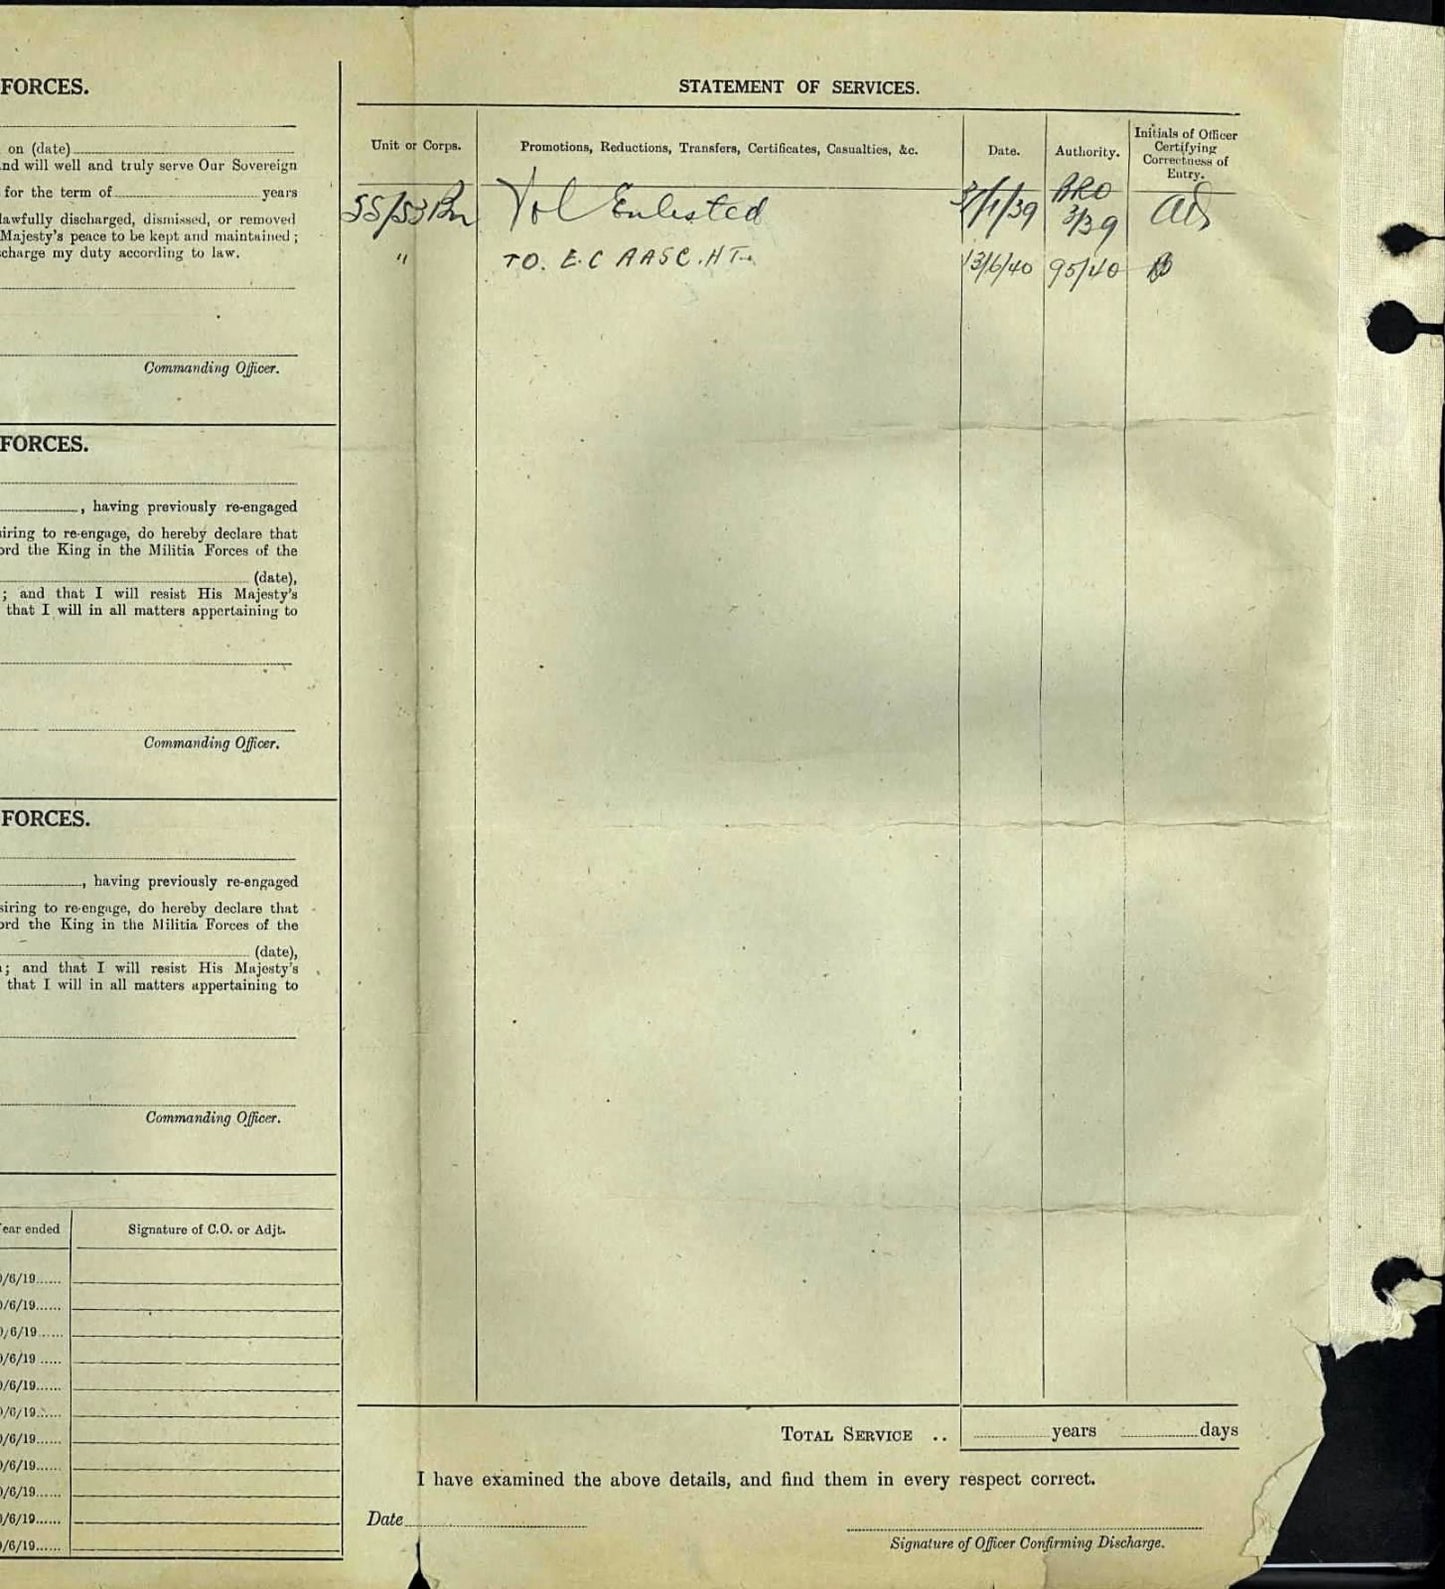 FORCES.
on (date)
nd will well and truly serve Our Sovereign
for the term of years
lawfully discharged, dismissed, or removed
Majesty's peace to be kept and maintained;
charge my duty according to law.
Commanding Officer.
FORCES.
, having previously re-engaged
iring to re-engage, do hereby declare that
ord the King in the Militia Forces of the
(date),
; and that I will resist His Majesty's
that I will in all matters appertaining to
Commanding Officer.
FORCES.
, having previously re-engaged
siring to re-engage, do hereby declare that
ord the King in the Militia Forces of the
(date),
; and that I will resist His Majesty's
that I will in all matters appertaining to
Commanding Officer.
ear ended Signature of C.O. or Adjt.
/6/19......
/6/19......
/6/19......
/6/19.....
/6/19......
/6/19......
/6/19......
/6/19......
/6/19......
/6/19......
/6/19......
STATEMENT OF SERVICES.
Unit or Corps. Promotions, Reductions, Transfers, Certificates, Casualties, &c. Date. Authority. Initials of Officer Certifying Correctness of Entry.
55/53 Bn Vol Enlisted /1/39 BRO 3/39
" TO. E.C AASC. HT. 13/6/40 95/40
TOTAL SERVICE .. years days
I have examined the above details, and find them in every respect correct.
Date
Signature of Officer Confirming Discharge.